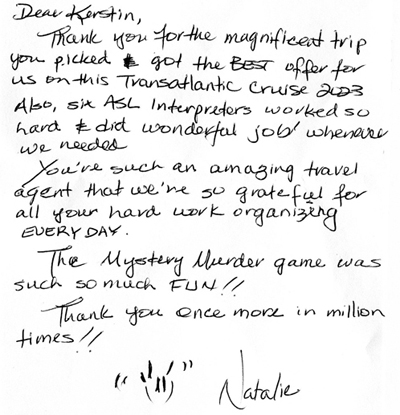 Dear Kerstin,
Thank you for the magnificent trip
you picked & got the BEST offer for
us on this Transatlantic Cruise 2023
Also, six ASL Interpreters worked so
hard & did wonderful job whenever
we needed
You're such an amazing travel
agent that we're so grateful for
all your hard work organizing
EVERY DAY.
The Mystery Murder game was
such so much FUN!!
Thank you once more in million
times!!
Natalie